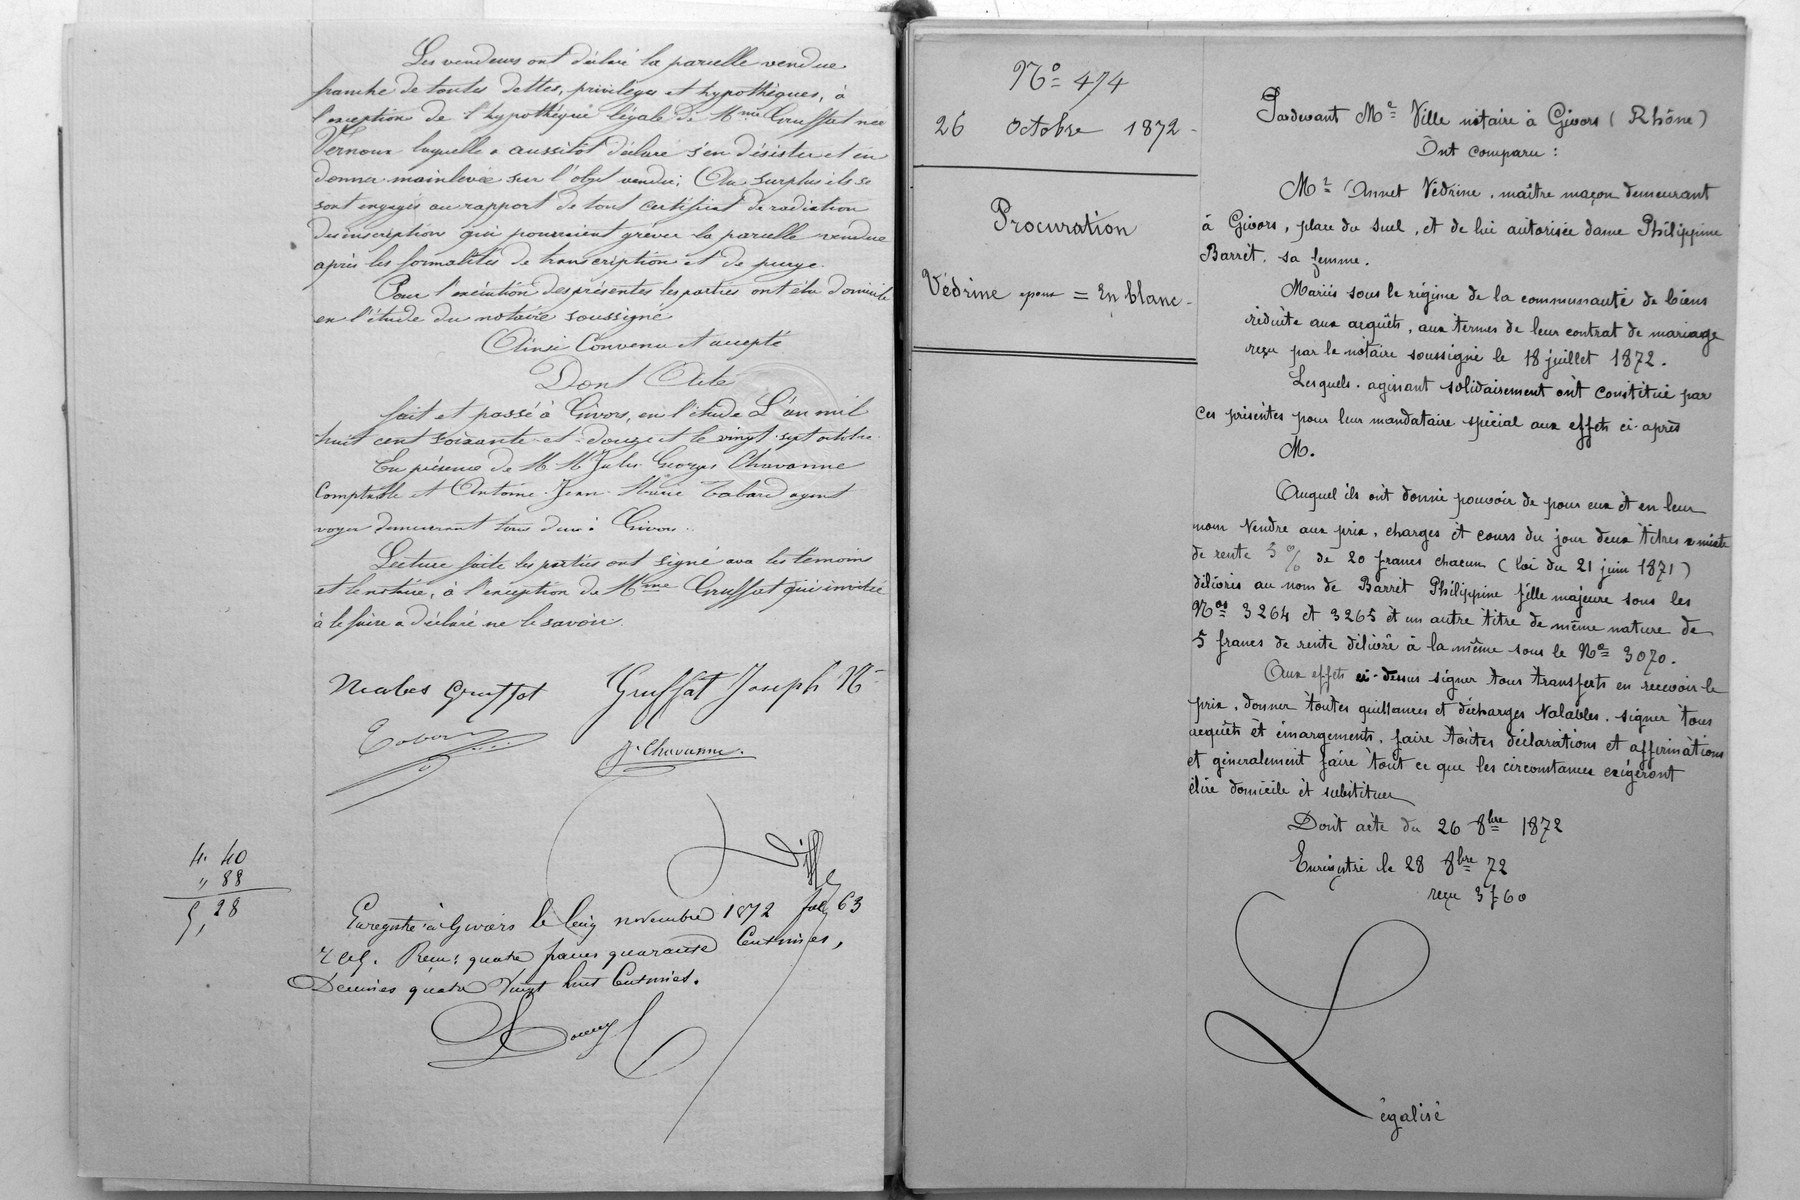 Les vendeurs ont déclaré la parcelle vendue
franche de toutes dettes, privilèges et hypothèques, à
l'exception de l'hypothèque légale de Mme Gruffat née
Vernoux laquelle a aussitôt déclaré s'en désister et en
donner mainlevée sur l'objet vendu; Au surplus ils se
sont engagés au rapport de tout certificat de radiation
des inscription qui pourraient gréver la parcelle vendue
après les formalités de transcription et de purge.
Pour l'exécution des présentes les parties ont élu domicile
en l'étude du notaire soussigné
Ainsi Convenu et accepté
Dont Acte
fait et passé à Givors, en l'étude L'an mil
huit cent soixante-et-douze et le vingt-sept octobre.
En présence de M. M. Jules Georges Chavanne
Comptable et Antoine Jean Marie Tabard agent
voyer demeurant tous deux à Givors.
Lecture faite les parties ont signé avec les témoins
et le notaire, à l'exception de Mme Gruffat qui invitée
à le faire a déclaré ne le savoir.
Gruffat
Gruffat Joseph
J. Chavanne.
4. 40
" 88
5, 28
Enregistré à Givors le cinq novembre 1872 fol 63
Reçu: quatre francs quarante Centimes,
Décimes quatre Vingt huit Centimes.
No 474
26 Octobre 1872
Procuration
Védrine epoux = En blanc
Pardevant Me Ville notaire à Givors (Rhône)
Ont comparu :
Mr Annet Védrine, maître maçon demeurant
à Givors, place du Suel, et de lui autorisée dame Philippine
Barret, sa femme.
Mariés sous le régime de la communauté de biens
réduite aux acquêts, aux termes de leur contrat de mariage
reçu par le notaire soussigné le 18 juillet 1872.
Lesquels, agissant solidairement ont constitué par
ces présentes pour leur mandataire spécial aux effets ci-après
M.
Auquel ils ont donné pouvoir de pour eux et en leur
nom Vendre aux prix, charges et cours du jour deux titres mixte
de rente 5 % de 20 francs chacun (loi du 21 juin 1871)
délivrés au nom de Barret Philippine fille majeure sous les
Nos 3264 et 3265 et un autre titre de même nature de
5 francs de rente délivré à la même sous le No 3070.
Aux effets ci-dessus signer tous transferts en recevoir le
prix, donner toutes quittances et décharges Valables, signer tous
acquêts et émargements, faire toutes déclarations et affirmations
et généralement faire tout ce que les circonstances exigeront
élire domicile et substituer
Dont acte du 26 8bre 1872
Enregistré le 28 8bre 72
reçu 3f60
Légalisé